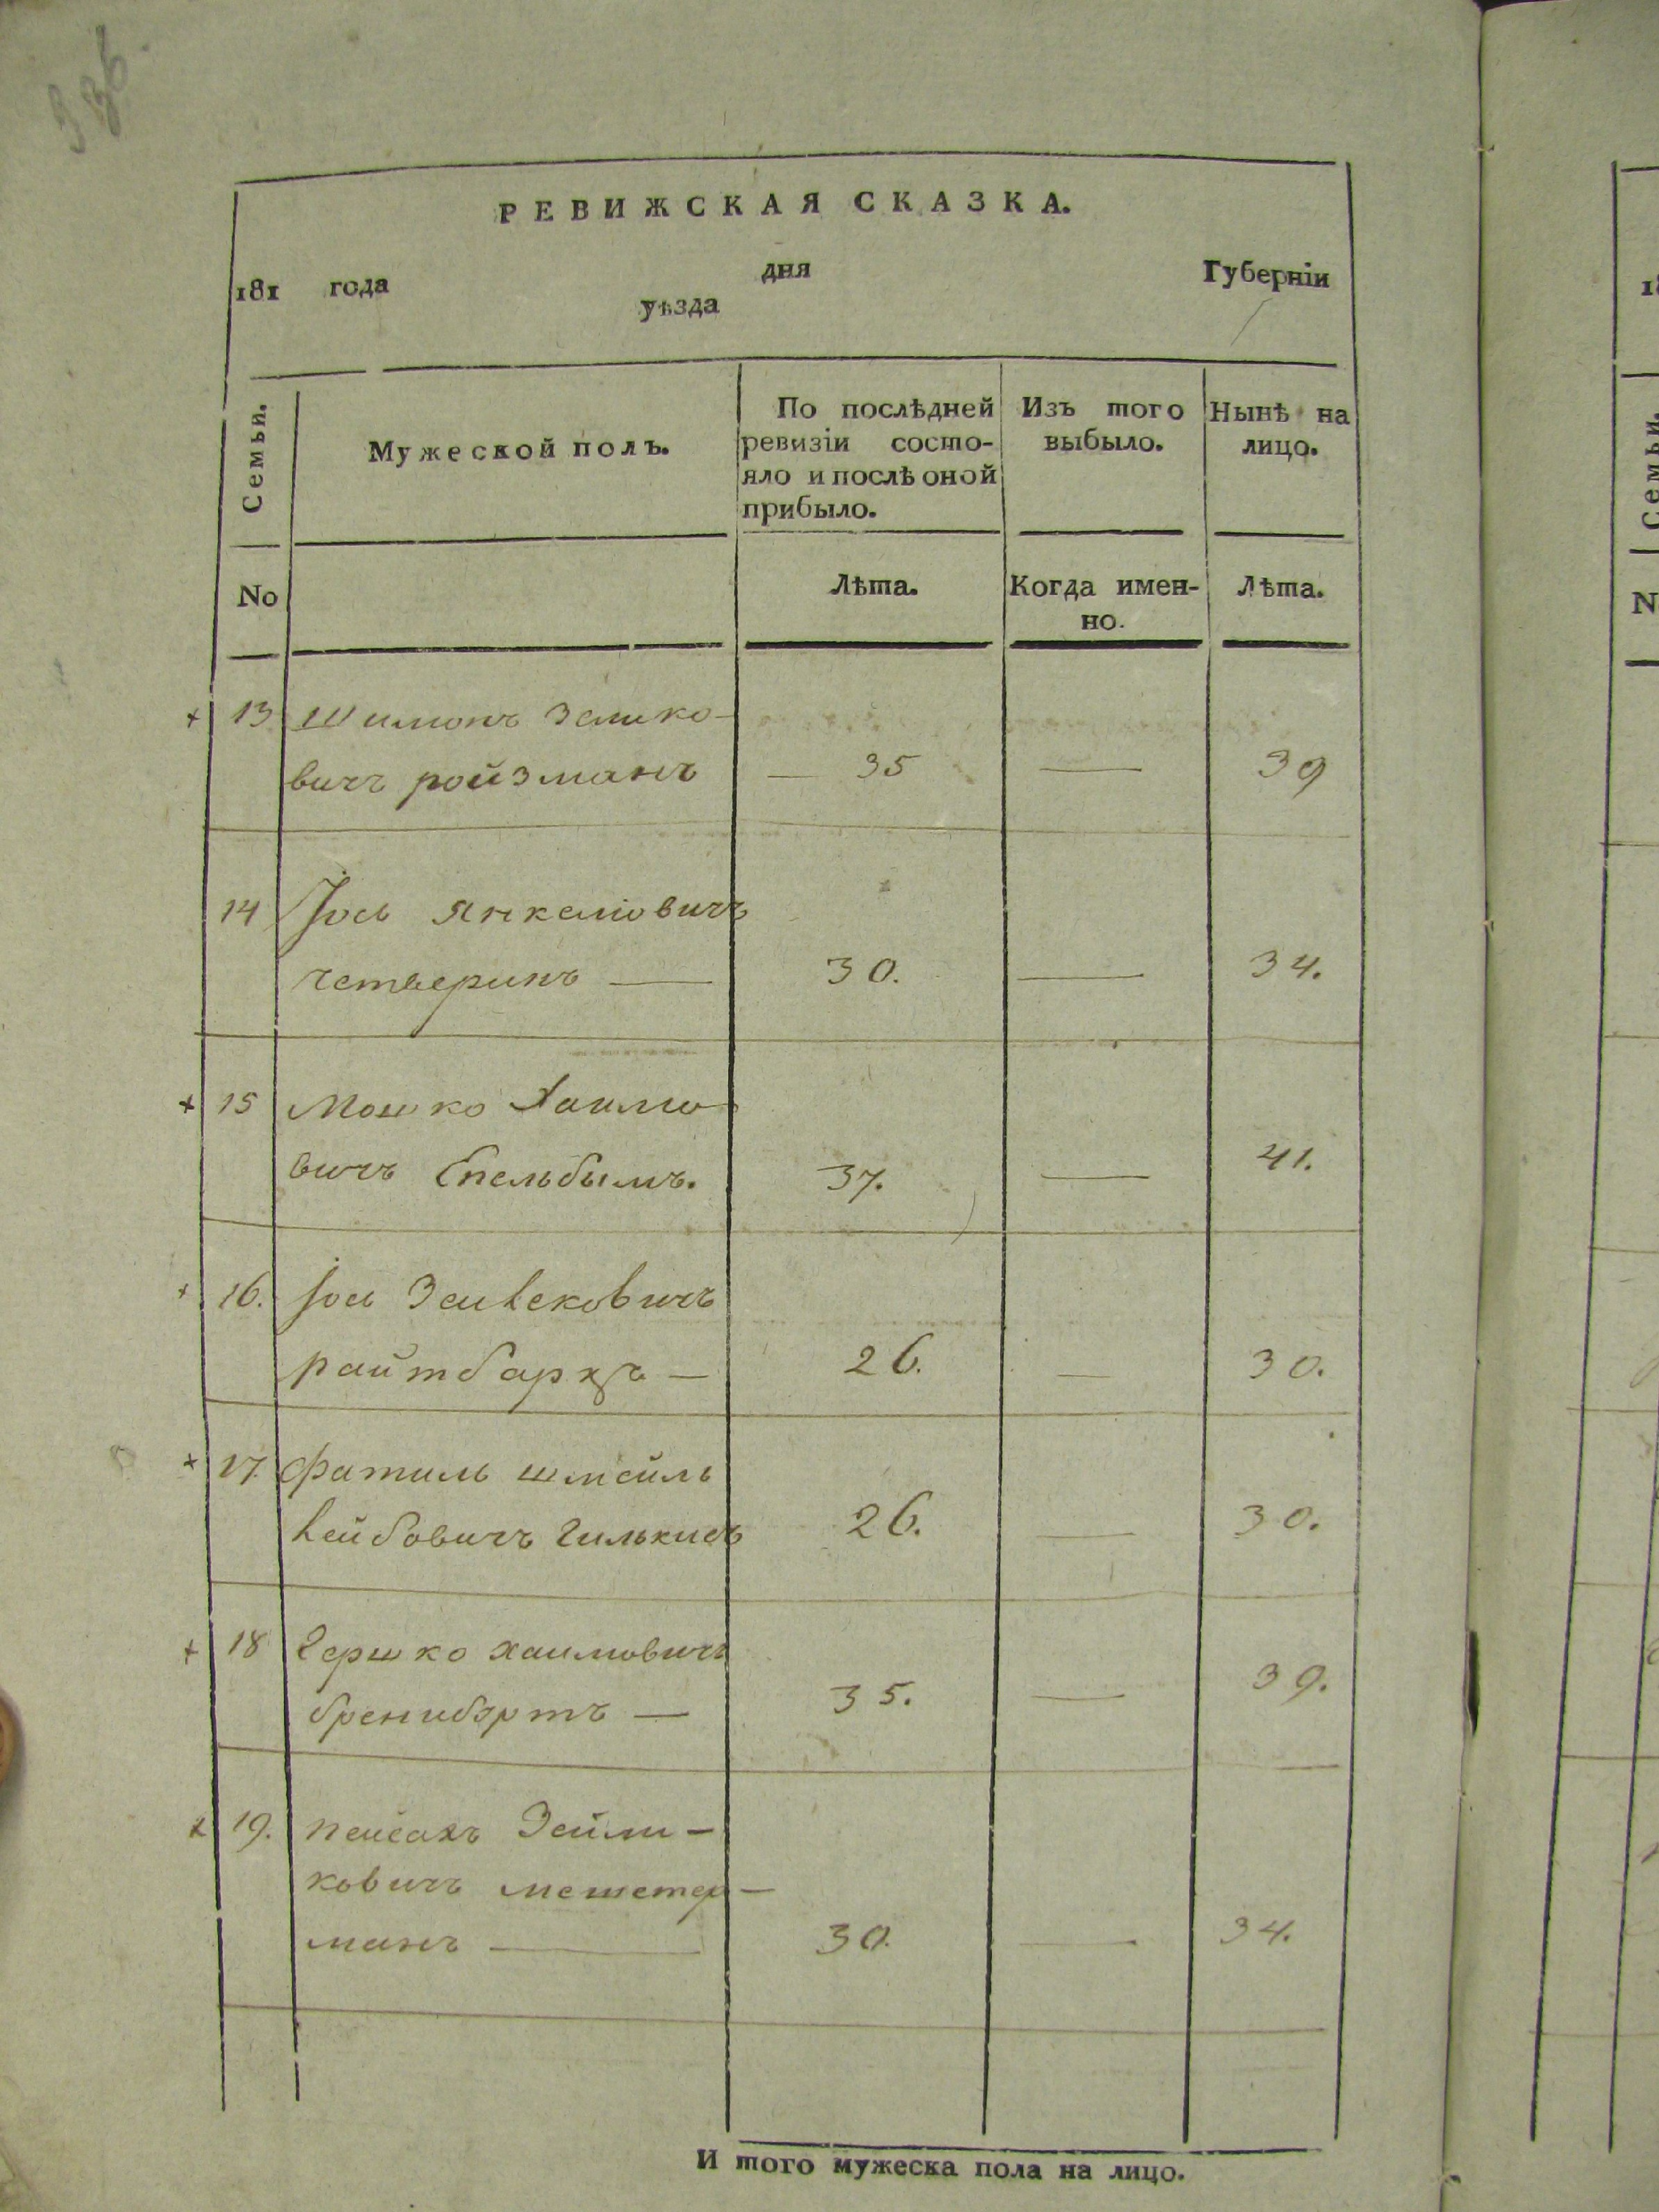 336.
РЕВИЖСКАЯ СКАЗКА.
181 года дня Губерніи
уѣзда
Семьи.
Мужеской полъ.
По послѣдней ревизіи состояло и послѣ оной прибыло.
Изъ того выбыло.
Нынѣ на лицо.
No
Лѣта.
Когда именно.
Лѣта.
13 Шимонъ Зелико-
вичъ ройзманъ — 35 — 39
14 Іось Янкеліовичъ
четверинъ — 30. — 34.
15 Мошко Хаимо-
вичъ Епельбымъ. 37. — 41.
16. Іось Зейлековичъ
райтбаргъ — 26. — 30.
17. Фатиль шмейль
лейбовичъ Гилькисъ 26. — 30.
18 Гершко хаимовичъ
35. — 39.
19. пейсахъ Зейли-
ковичъ мешетер-
манъ — 30. — 34.
И того мужеска пола на лицо.